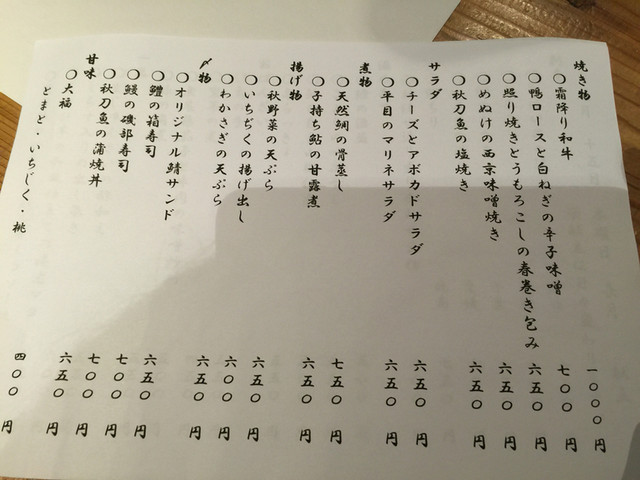 焼き物
〇霜降り和牛 一〇〇〇円
〇鴨ロースと白ねぎの辛子味噌 七〇〇円
〇照り焼きとうもろこしの春巻き包み 六五〇円
〇めぬけの西京味噌焼き 六五〇円
〇秋刀魚の塩焼き 六五〇円
サラダ
〇チーズとアボカドサラダ 六五〇円
〇平目のマリネサラダ 六五〇円
煮物
〇天然鯛の骨蒸し 七五〇円
〇子持ち鮎の甘露煮 六五〇円
揚げ物
〇秋野菜の天ぷら 六五〇円
〇いちぢくの揚げ出し 六〇〇円
〇わかさぎの天ぷら 六五〇円
〆物
〇オリジナル鯖サンド 六五〇円
〇鱧の箱寿司 七〇〇円
〇鰻の磯部寿司 七〇〇円
〇秋刀魚の蒲焼丼 六五〇円
甘味
〇大福 四〇〇円
とまと・いちじく・桃